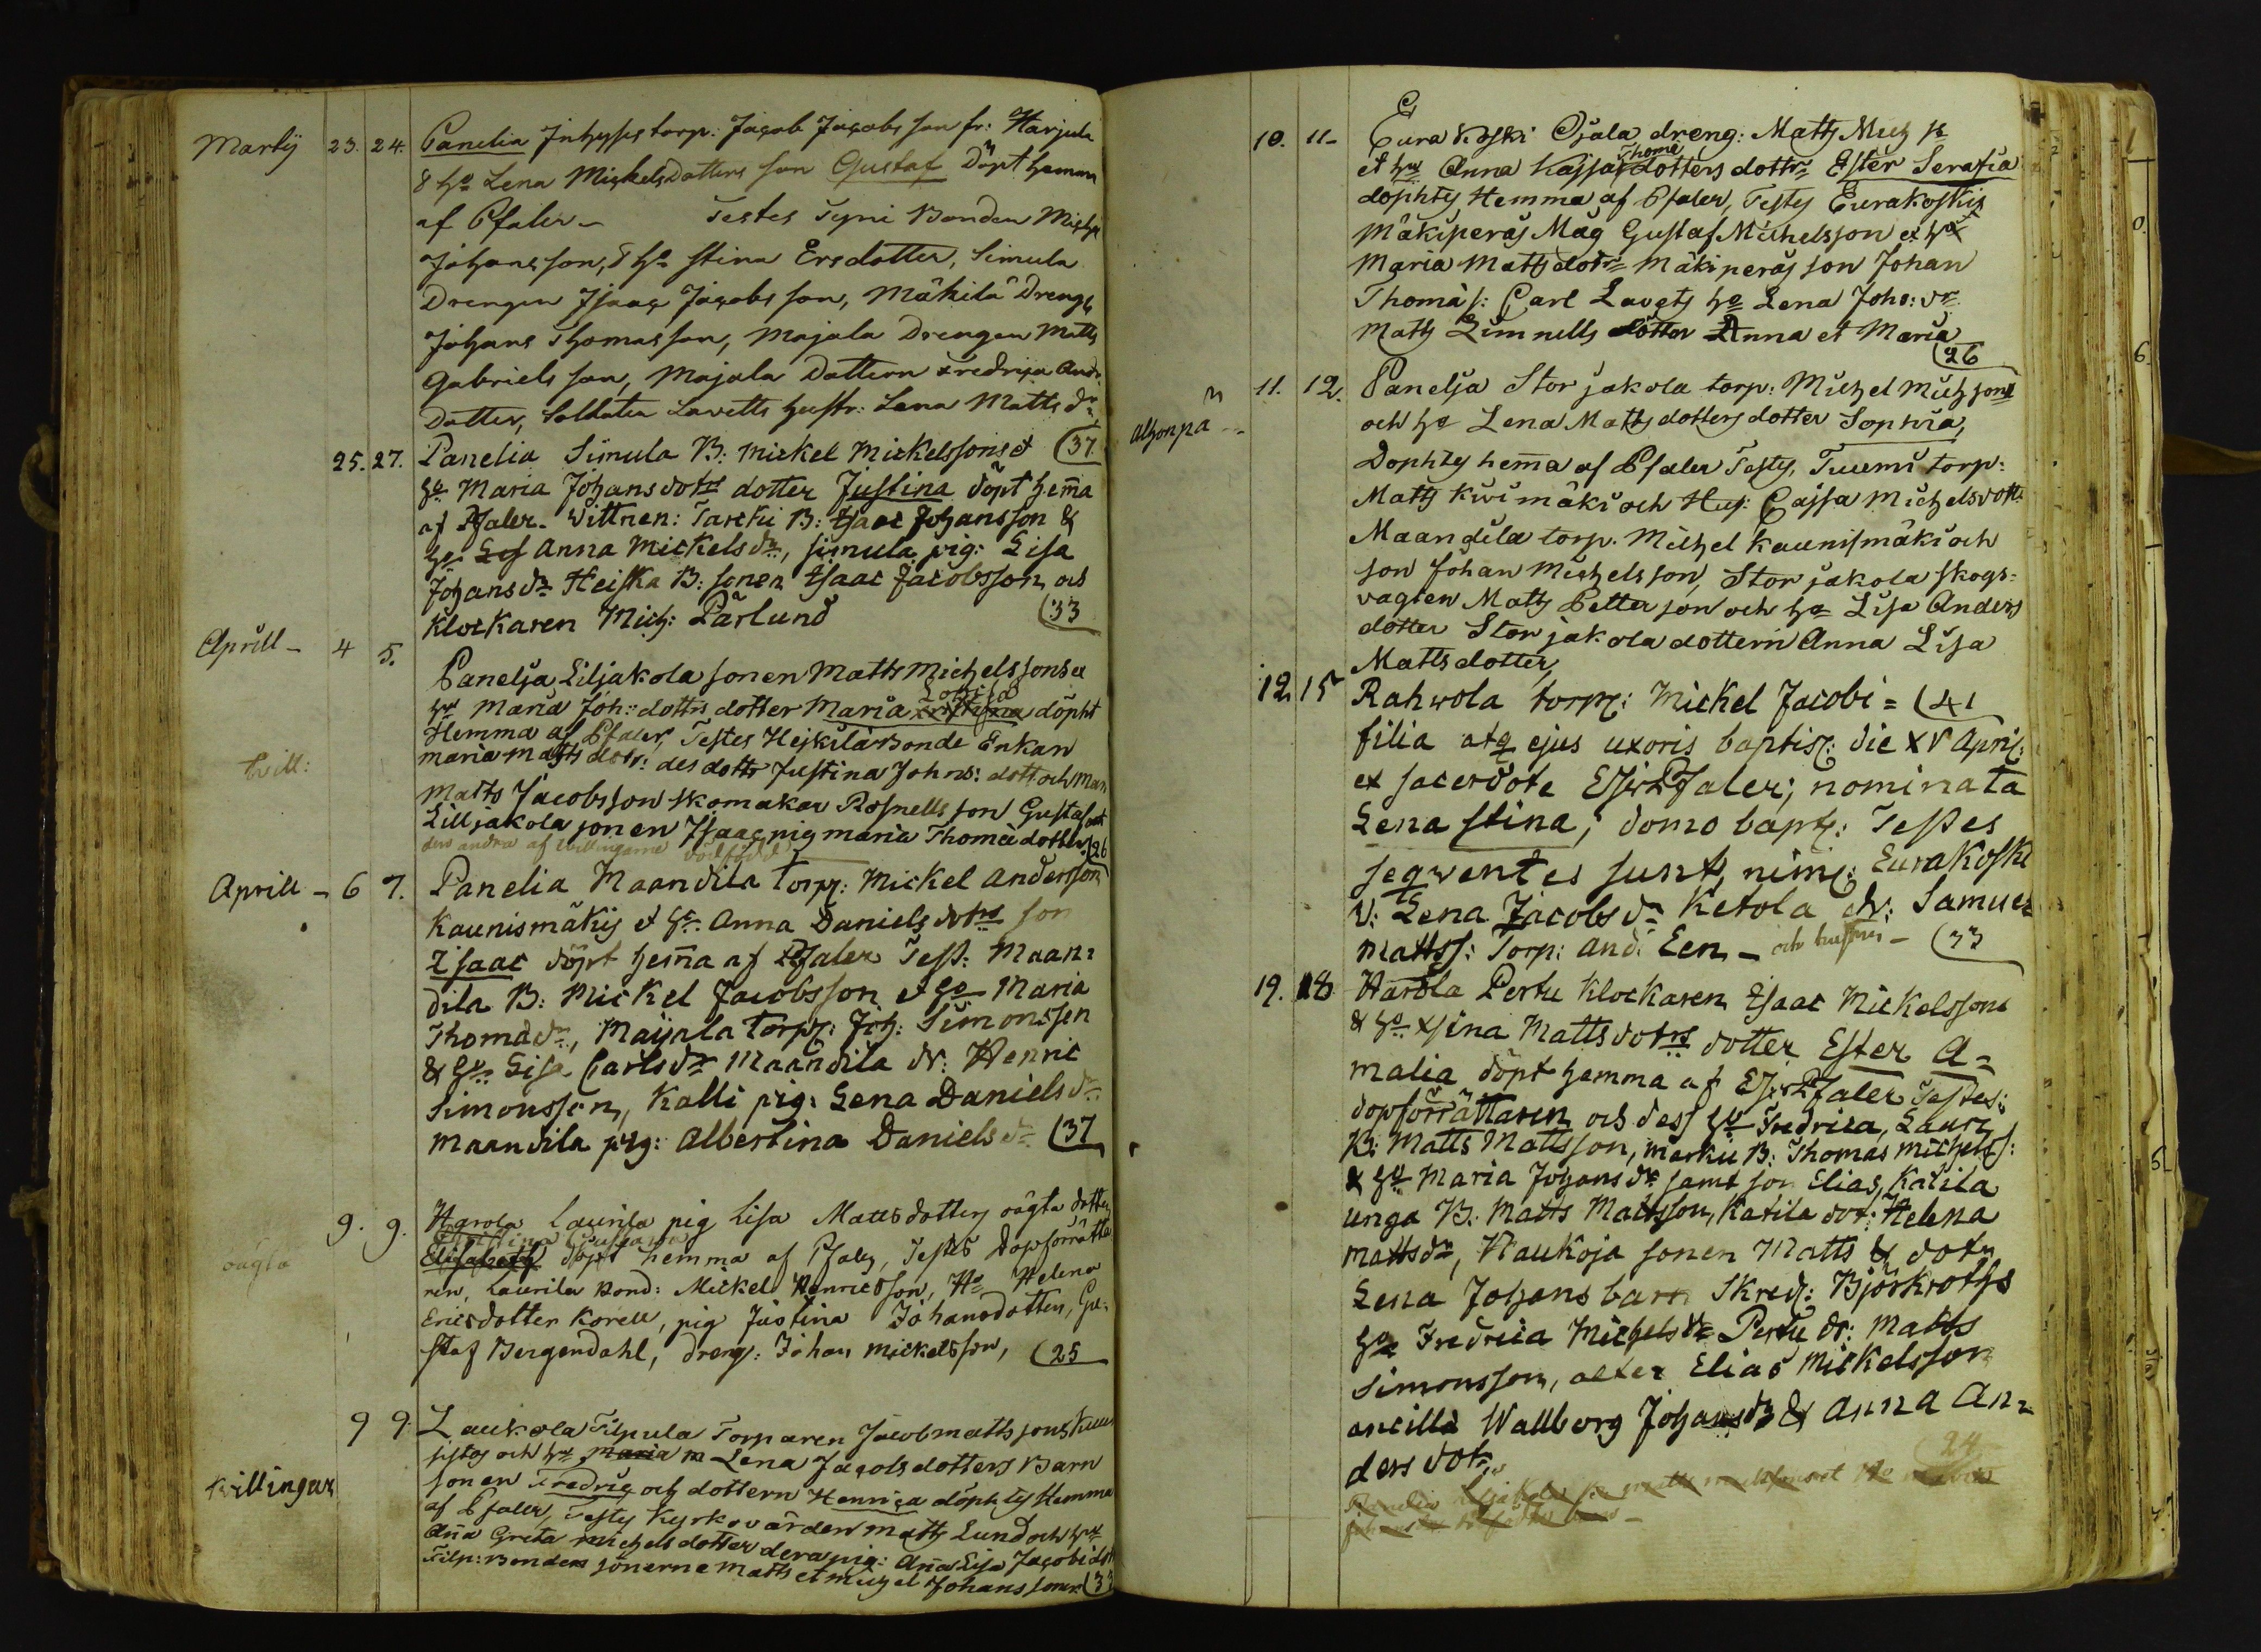 Martij 23. 24. Panelia Inhyses torp: Jacob Jacobsson fr: Harjula
& ho Lena Mickelsdotters son Gustaf Döpt hemma
af Pfaler - Testes Tyni Bonden Michel
Johansson, & ho Stina Ersdotter, Simula
Drengen Isaac Jacobsson, Mäkilä Dreng
Johans Thomasson, Majala Drengen Matts
Gabrielsson, Majala Dottern Fredrica Andr.
Dotter, Soldaten Lavetts hustr: Lena Matts dr
25. 27. Panelia Simula B: Mickel Mickelssons et (37
ho Maria Johansdotrs dotter Justina döpt hema
af Pfaler. Vittnen: Tarcki B: Isaac Johansson &
ho Anna Mickelsdr, Simula pig: Lisa
Johansdr Heiska B: sonen Isaac Jacobsson och
Klockaren Mich: Pärlund (33
Aprill - 4 5. Panelja Liljakola sonen Matts Michelssons et
Lovisa
hu Maria Joh: dottrs dotter Maria döpht
Hemma af Pfaler, Testes Hejkilä Bonde Enkan
Maria Matts dotr: des dottr Justina Johns: dott och Man
Matts Jacobsson Skomakar Rosnells son Gustaf
Lilljakola sonen Isaac pig Maria Thomä dotter (26
den andra af tvillingarne dödfödd
tvill:
Aprill - 6 7. Panelia Maandila Torp: Mickel Andersson
Kaunismäkis et ho Anna Daniels dotrs son
Isaac döpt hema af Pfaler Test: Maan=
dila B: Mickel Jacobsson et ho Maria
Thomædr, Majala Torp: Joh: Simonsson
& ho Lisa Carlsdr Maandila dr: Henric
Simonsson, Kalli pig: Lena Daniels dr
Maandila pig: Albertina Daniels dr (37
oägta 9. 9. Harola Laurila pig Lisa Mattsdotters oägta dotter
Christina Gustava
Elisabeth döpt hemma af Pfaler, Testes Dopförrätta
ren, Laurila Bond: Mickel Henricsson, Ho Helena
Ericsdotter Korell, pig Justina Johansdotter, Gu=
staf Bergendahl, dreng: Johan Mickelsson, (25
Tvillingar 9 9. Laukola Filpula Torparen Jacob Mattssons
och hu Maria m Lena Jacobsdotters Barn
sonen Fredric och dottern Henrica döphtes Hemma
af Pfaler, Testes Kyrkovärden Matts Lund och hu
Aña Greta Michelsdotter dera pig: Aña Lisa Jacobidot
Filp: Bondens sönerne Matts et Michel Johanssoner (33
10. 11- Eura Koski Ojala dreng: Matts Mich s:
Thome
et hu Anna Kajsa dotters dottr Ester Serafia
döphtes Hemma af Pfaler, Testes Eurakoskis
Mäkiperäs Mag Gustaf Michelsson et hu
Maria Matts dotr Mäkiperäs son Johan
Thomä s: Carl Lavets ho Lena Joho: dr
Matts Limnells dotter Anna et Maria
(26
11. 12. Panelja Storjakola torp: Michel Michsons
och ho Lena Matts dotters dotter Sophia,
Döphtes hema af Pfaler Testes, Tuomi torp:
Matts Kivimäki och Hus: Cajsa Michelsdott.
Maandila torp. Michel Kaunismäki och
son Johan Michelsson, Storjakola skogs=
vagten Matts Pettersson och ho Lisa Anders
dotter Storjakola dottern Anna Lisa
Mattsdotter,
12 15 Rahvola torp: Mickel Jacobi = (41
filia atq ejus uxoris baptis: die XV April:
ex sacerdote Pfaler; nominata
Lena Stina; domo bapt: Testes
seqventes sunt, nim: Eurakoski
v: Lena Jacobs dr Ketola dr: Samuel
Mattss: Torp: And: Een - och hustru - (33
19. 18 Harola Pertu Klockaren Isaac Mickelssons
& ho Stina Mattsdotrs dotter Ester A=
malia döpt hemma af Pfaler Testes:
dopförrättaren och dess ho Fredrica, Lauri
B: Matts Mattsson, Markii B: Thomas Michels:
& ho Maria Johansdr samt son Elias, Katila
unga B. Matts Mattsson, Katila dot: Helena
Mattsdr, Naukoja sonen Matts & dotr
Lena Johans barn Skred: Björkroths
ho Fredrica Michelsdr Pertu dr: Matts
Simonsson, alter Elias Mickelsson
ancilla Wallborg Johansdr & Anna An=
ders dotr
24